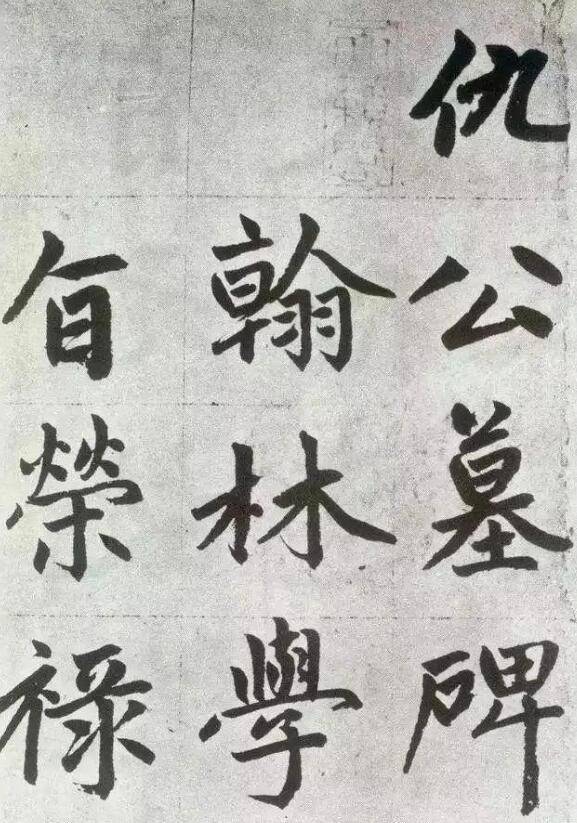 仇公墓碑
翰林學
旨榮祿